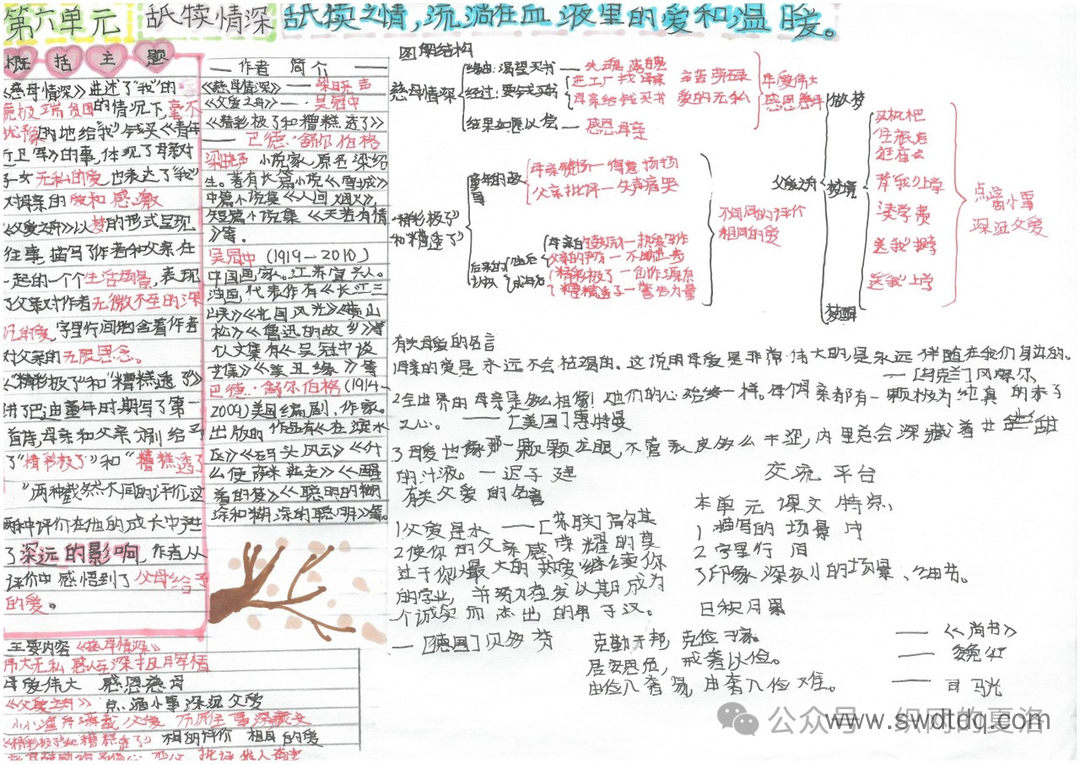 第六单元 舐犊情深 舐犊之情,流淌在血液里的爱和温暖。
概括主题
《慈母情深》讲述了"我"的
的情况下,毫不
犹豫的地给"我"钱买《青年
近卫军》的事,体现了母亲对
子女无私的爱,也表达了"我"
对母亲的爱和感激
《父爱之舟》以梦的形式呈现
往事,描写了作者和父亲在
一起的一个个生活场景,表现
了父亲对作者无微不至的深
沉的爱,字里行间饱含着作者
对父亲的无限思念。
《"精彩极了"和"糟糕透了"》
讲了巴迪童年时期写了第一
首诗,母亲和父亲分别给予
了"精彩极了"和"糟糕透了
"两种截然不同的评价,这
两种评价在他的成长中产生
了深远的影响,作者从
评价中感悟到了父母给予
的爱。
作者简介
《慈母情深》——梁晓声
《父爱之舟》——吴冠中
《精彩极了和糟糕透了》
——巴德·舒尔伯格
梁晓声 小说家,原名梁绍
生。著有长篇小说《雪城》
中篇小说集《人间烟火》
短篇小说集《天若有情
》等。
吴冠中(1919-2010)
中国画家。江苏宜兴人。
油画代表作有《长江三
峡》《北国风光》《黄山
松》《鲁迅的故乡》等
《吴冠中谈
艺集》
巴德·舒尔伯格(1914-
2009)美国编剧,作家。
出版的作品有《在滨水
区》《码头风云》《什
么使萨米跑走》《醒
着的梦》《聪明的糊
涂和糊涂的聪明》等。
图解结构
慈母情深
缘由:渴望买书—失魂落魄
经过:要钱买书
进工厂找母亲 辛苦劳碌
母亲给钱买书 爱的无私
结果:如愿以偿—感恩母亲
母爱伟大
感恩慈母
"精彩极了"
和"糟糕透了"
童年的故事
母亲赞扬—得意扬扬
父亲批评—失声痛哭
后来的认识
母亲的鼓励—
父亲的严厉—不断进步
"精彩极了"—创作源泉
"糟糕透了"—警告力量
不同的评价
相同的爱
父爱之舟
做梦
梦境
买枇杷
住旅店
逛庙会
背我上学
凑学费
送我上学
梦醒
点滴小事
深沉父爱
有关母爱的名言
1母亲的爱是永远不会枯竭的。这说明母爱是非常伟大的,是永远伴随在我们身边的。
——[乌克兰]冈察尔
2全世界的母亲是多么相像!她们的心始终一样。每个母亲都有一颗极为纯真的赤子
之心。 ——[美国]惠特曼
3母爱也像那一颗颗龙眼,不管表皮多么干涩,内里总会深藏着甘甜
的汁液。—迟子建
有关父爱的名言
1父爱是水 ——[苏联]高尔基
2使你的父亲感荣耀的莫
过于你以最大的热爱继续你
的学业,并努力奋发以期成为
个诚实而杰出的男子汉。
——[德国]贝多芬
交流平台
本单元课文特点:
1描写的场景中
2字里行间
3印象深刻的场景、细节。
日积月累
克勤于邦,克俭于家。 ——《尚书》
居安思危,戒奢以俭。 ——魏征
由俭入奢易,由奢入俭难。 ——司马光
主要内容《慈母情深》
母爱伟大 感恩慈母
《父爱之舟》 点滴小事深沉父爱
《精彩极了和糟糕透了》 相同的爱
公众号·织网的夏洛
www.swdtdq.com